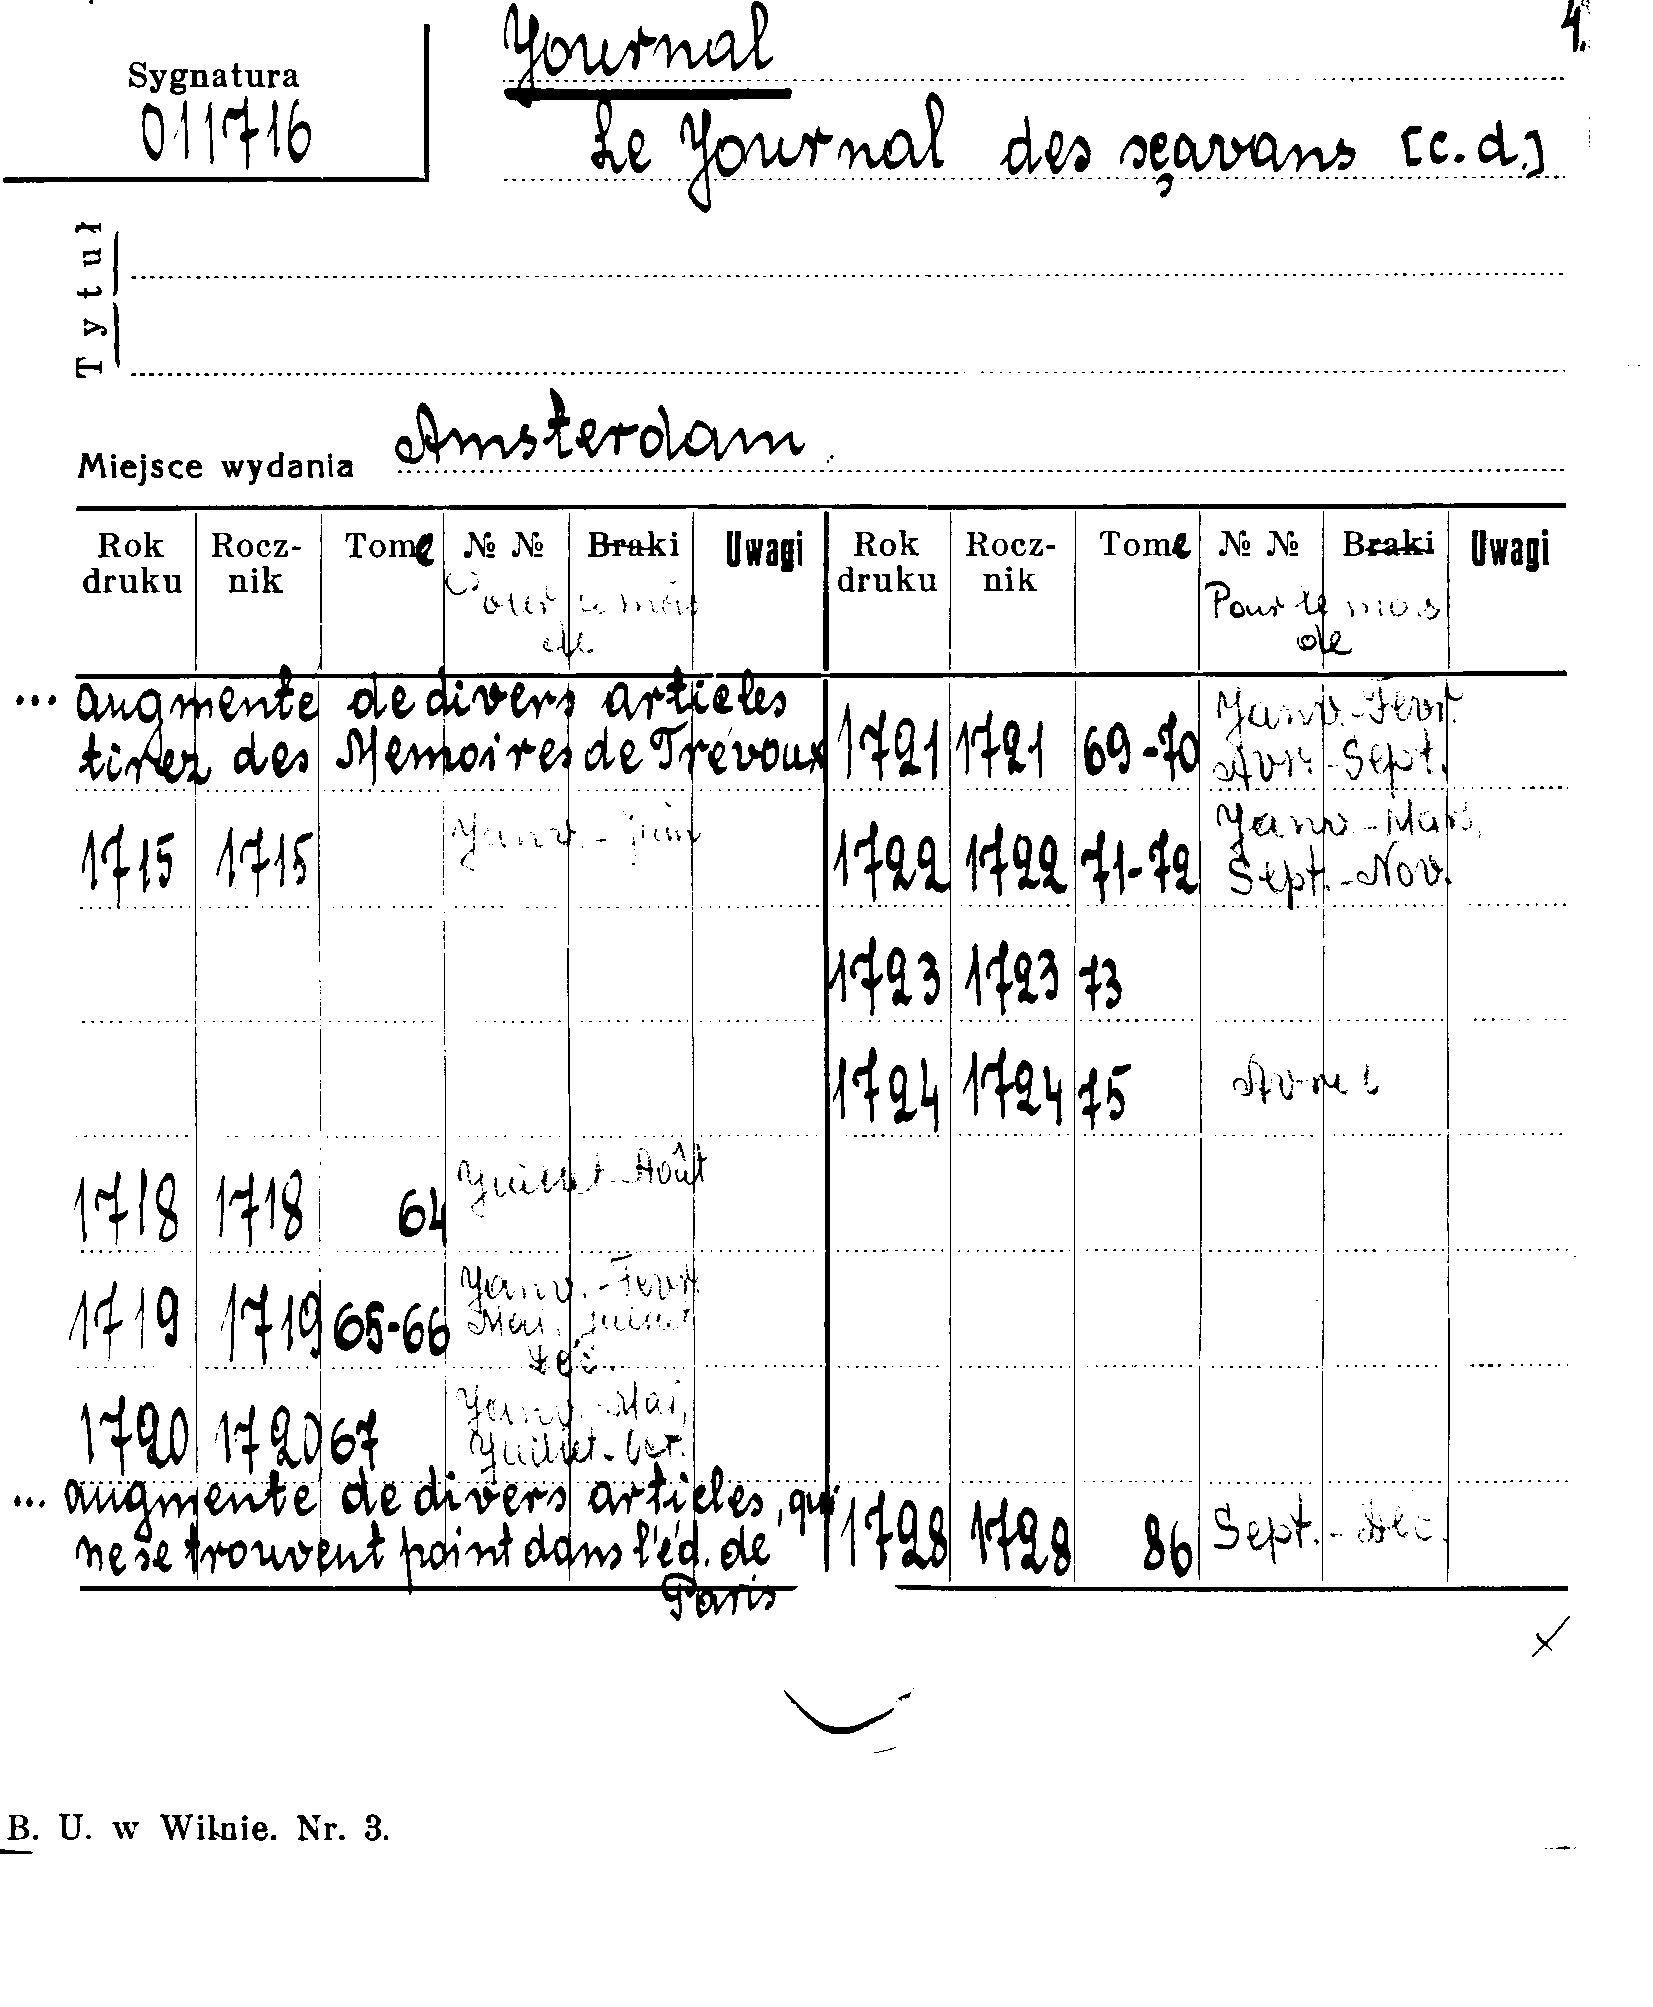 4.
Journal
Sygnatura
011716
Le Journal des sçavans [c.d.]
Tytuł
Miejsce wydania Amsterdam
Rok druku Rocz-nik Tome № № Braki Uwagi Rok druku Rocz-nik Tome № № Braki Uwagi
Pour le mois de Pour le mois de
... augmente de divers articles
tirez des Memoires de Trévoux
1721 1721 69-70 Janv.-Fevr. Avr.-Sept.
1715 1715 Janv.-Juin
1722 1722 71-72 Janv.-Mars, Sept.-Nov.
1723 1723 73
1724 1724 75 Avril
1718 1718 64 Juillet-Août
1719 1719 65-66 Janv.-Fevr. Mai, Dec.
1720 1720 67 Janv.-Mai, Juillet-Oct.
... augmente de divers articles, qui
ne se trouvent point dans l'éd. de
Paris
1728 1728 86 Sept.-Dec.
B. U. w Wilnie. Nr. 3.